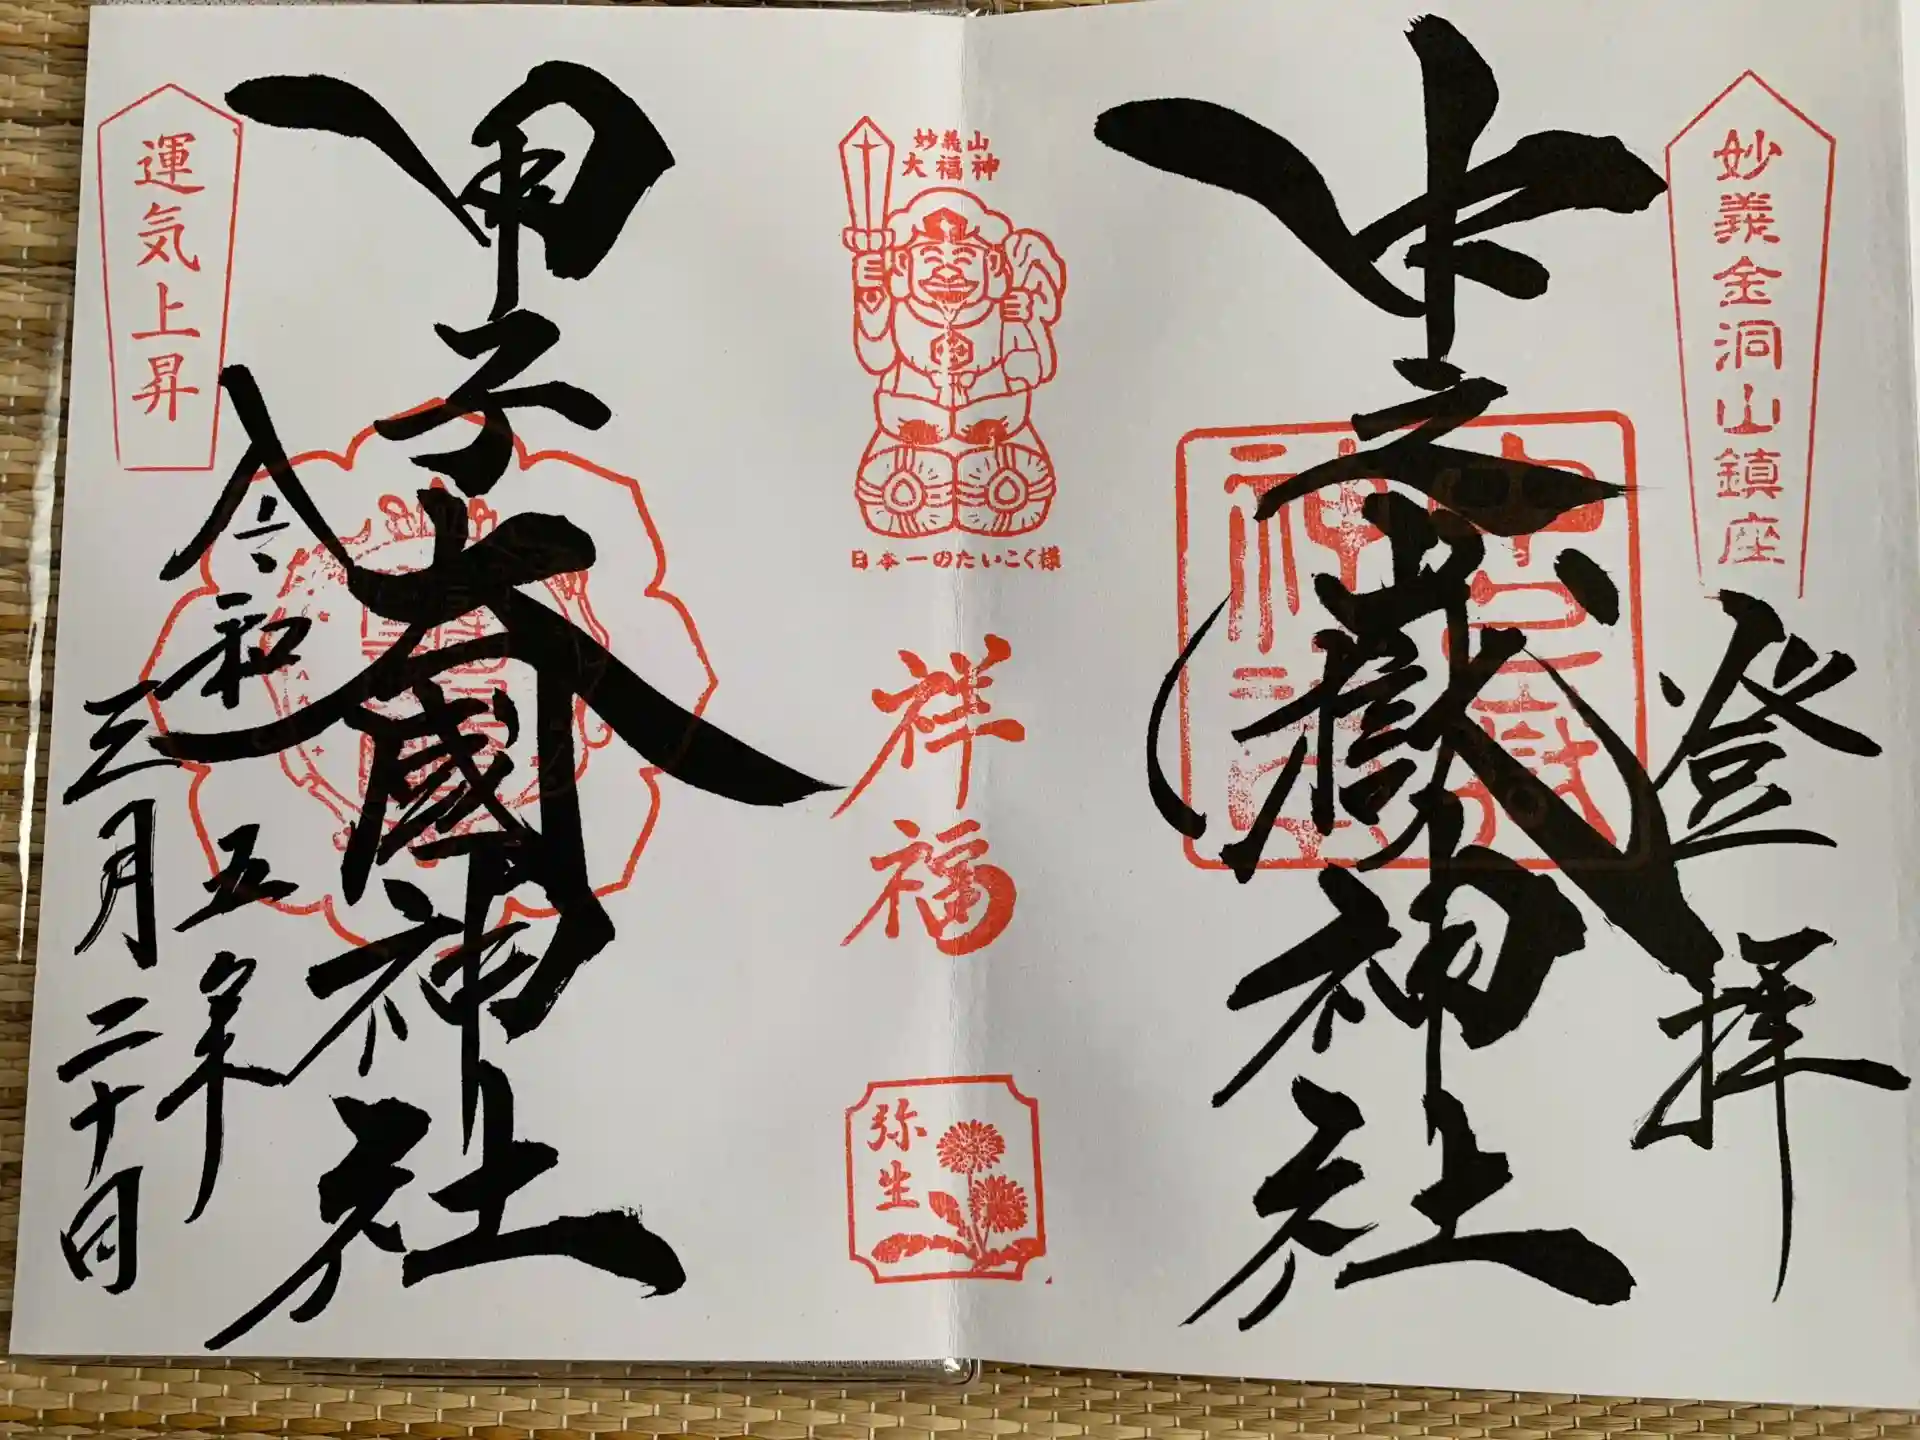 妙義金洞山鎮座
登拝
中之嶽神社
中之嶽
神社
妙義山
大福神
日本一のたいこく様
祥福
弥生
甲子大國神社
運気上昇
令和五年
三月二十日